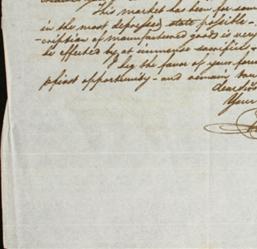 This market has been for som
in the most depressed state possible -
cription of manufactured goods is very
be effected by at immense sacrifice
I beg the favor of your forw
p first opportunity - and remain tru
dear Sir
Your